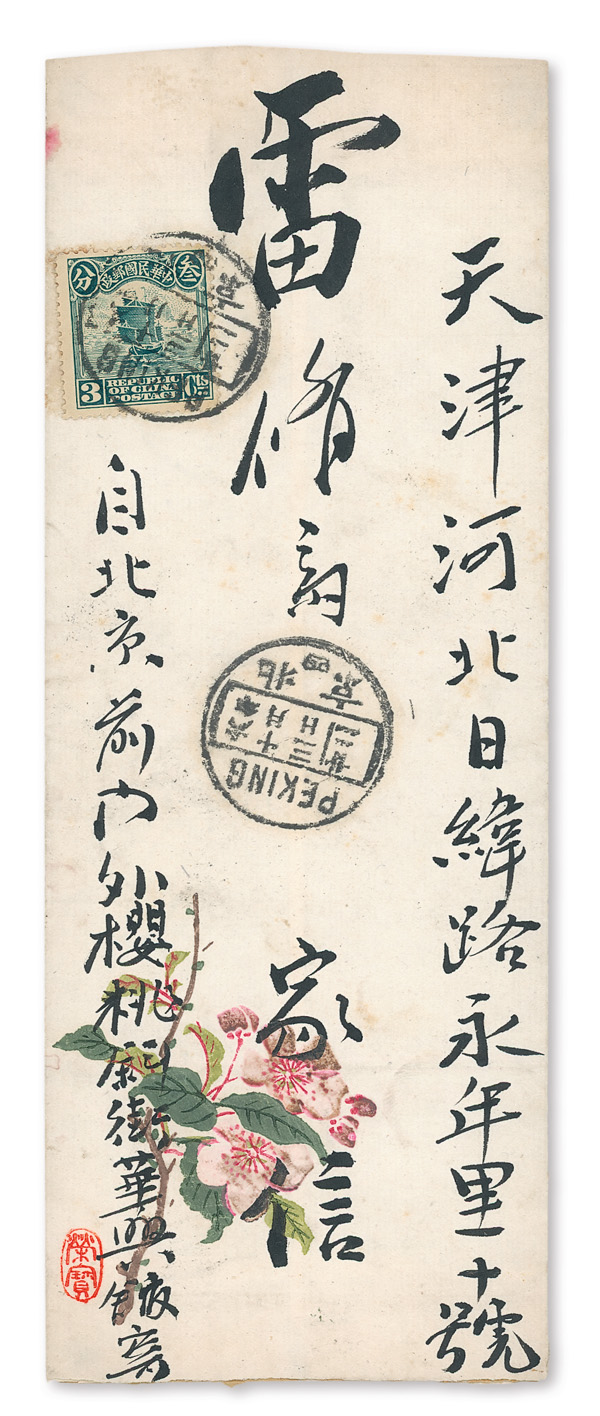 天津河北日緯路永年里十號
雷脩
家信
自北京前內外櫻桃街華興寄
中華民國郵政
叁分
3 Cts
REPUBLIC
OF CHINA
POSTAGE
北京
四
PEKING
榮寶